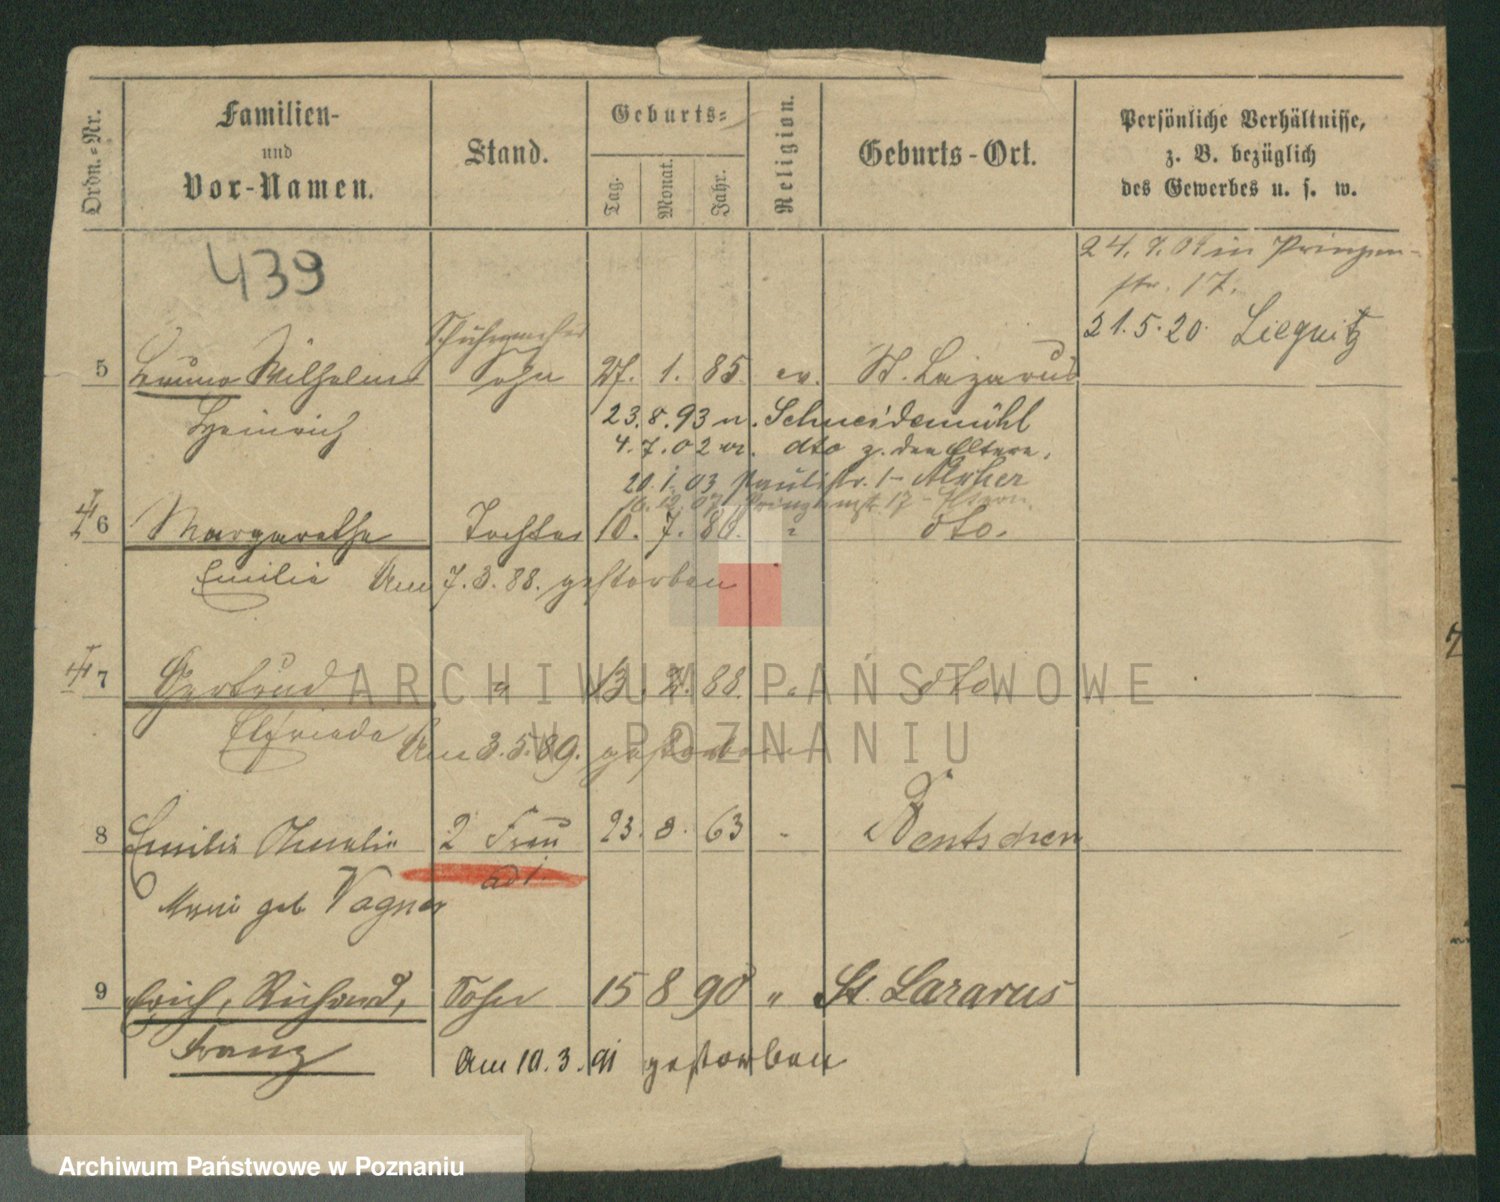 Ordn.=Nr.
Familien-
und
Vor-Namen.
Stand.
Geburts=
Tag.
Monat.
Jahr.
Religion.
Geburts-Ort.
Persönliche Verhältnisse,
z. B. bezüglich
des Gewerbes u. s. w.
439
24.7.01 in Prinzen-
str. 17.
21.5.20. Liegnitz
5 Bruno Wilhelm Sohn 27. 1. 85. ev. St. Lazarus
Heinrich
23.8.93 n. Schneidemühl
4.7.02 dto z. den Eltern.
20.1.03 Paulistr. 1-
6 Margarethe Tochter 10. 7. 86. " dto.
Emilie Am 7.3.88. gestorben
7 Gertrud " 13. 2. 88. " dto
Elfriede Am 3.5.89. gestorben
8 Emilie Amalie 2 Frau 23. 8. 63 " Bentschen
ad 1.
geb Vagner
9 Erich, Richard, Sohn 15 8 90 " St. Lazarus
Franz
Am 10.3.91 gestorben
ARCHIWUM PAŃSTWOWE
W POZNANIU
Archiwum Państwowe w Poznaniu